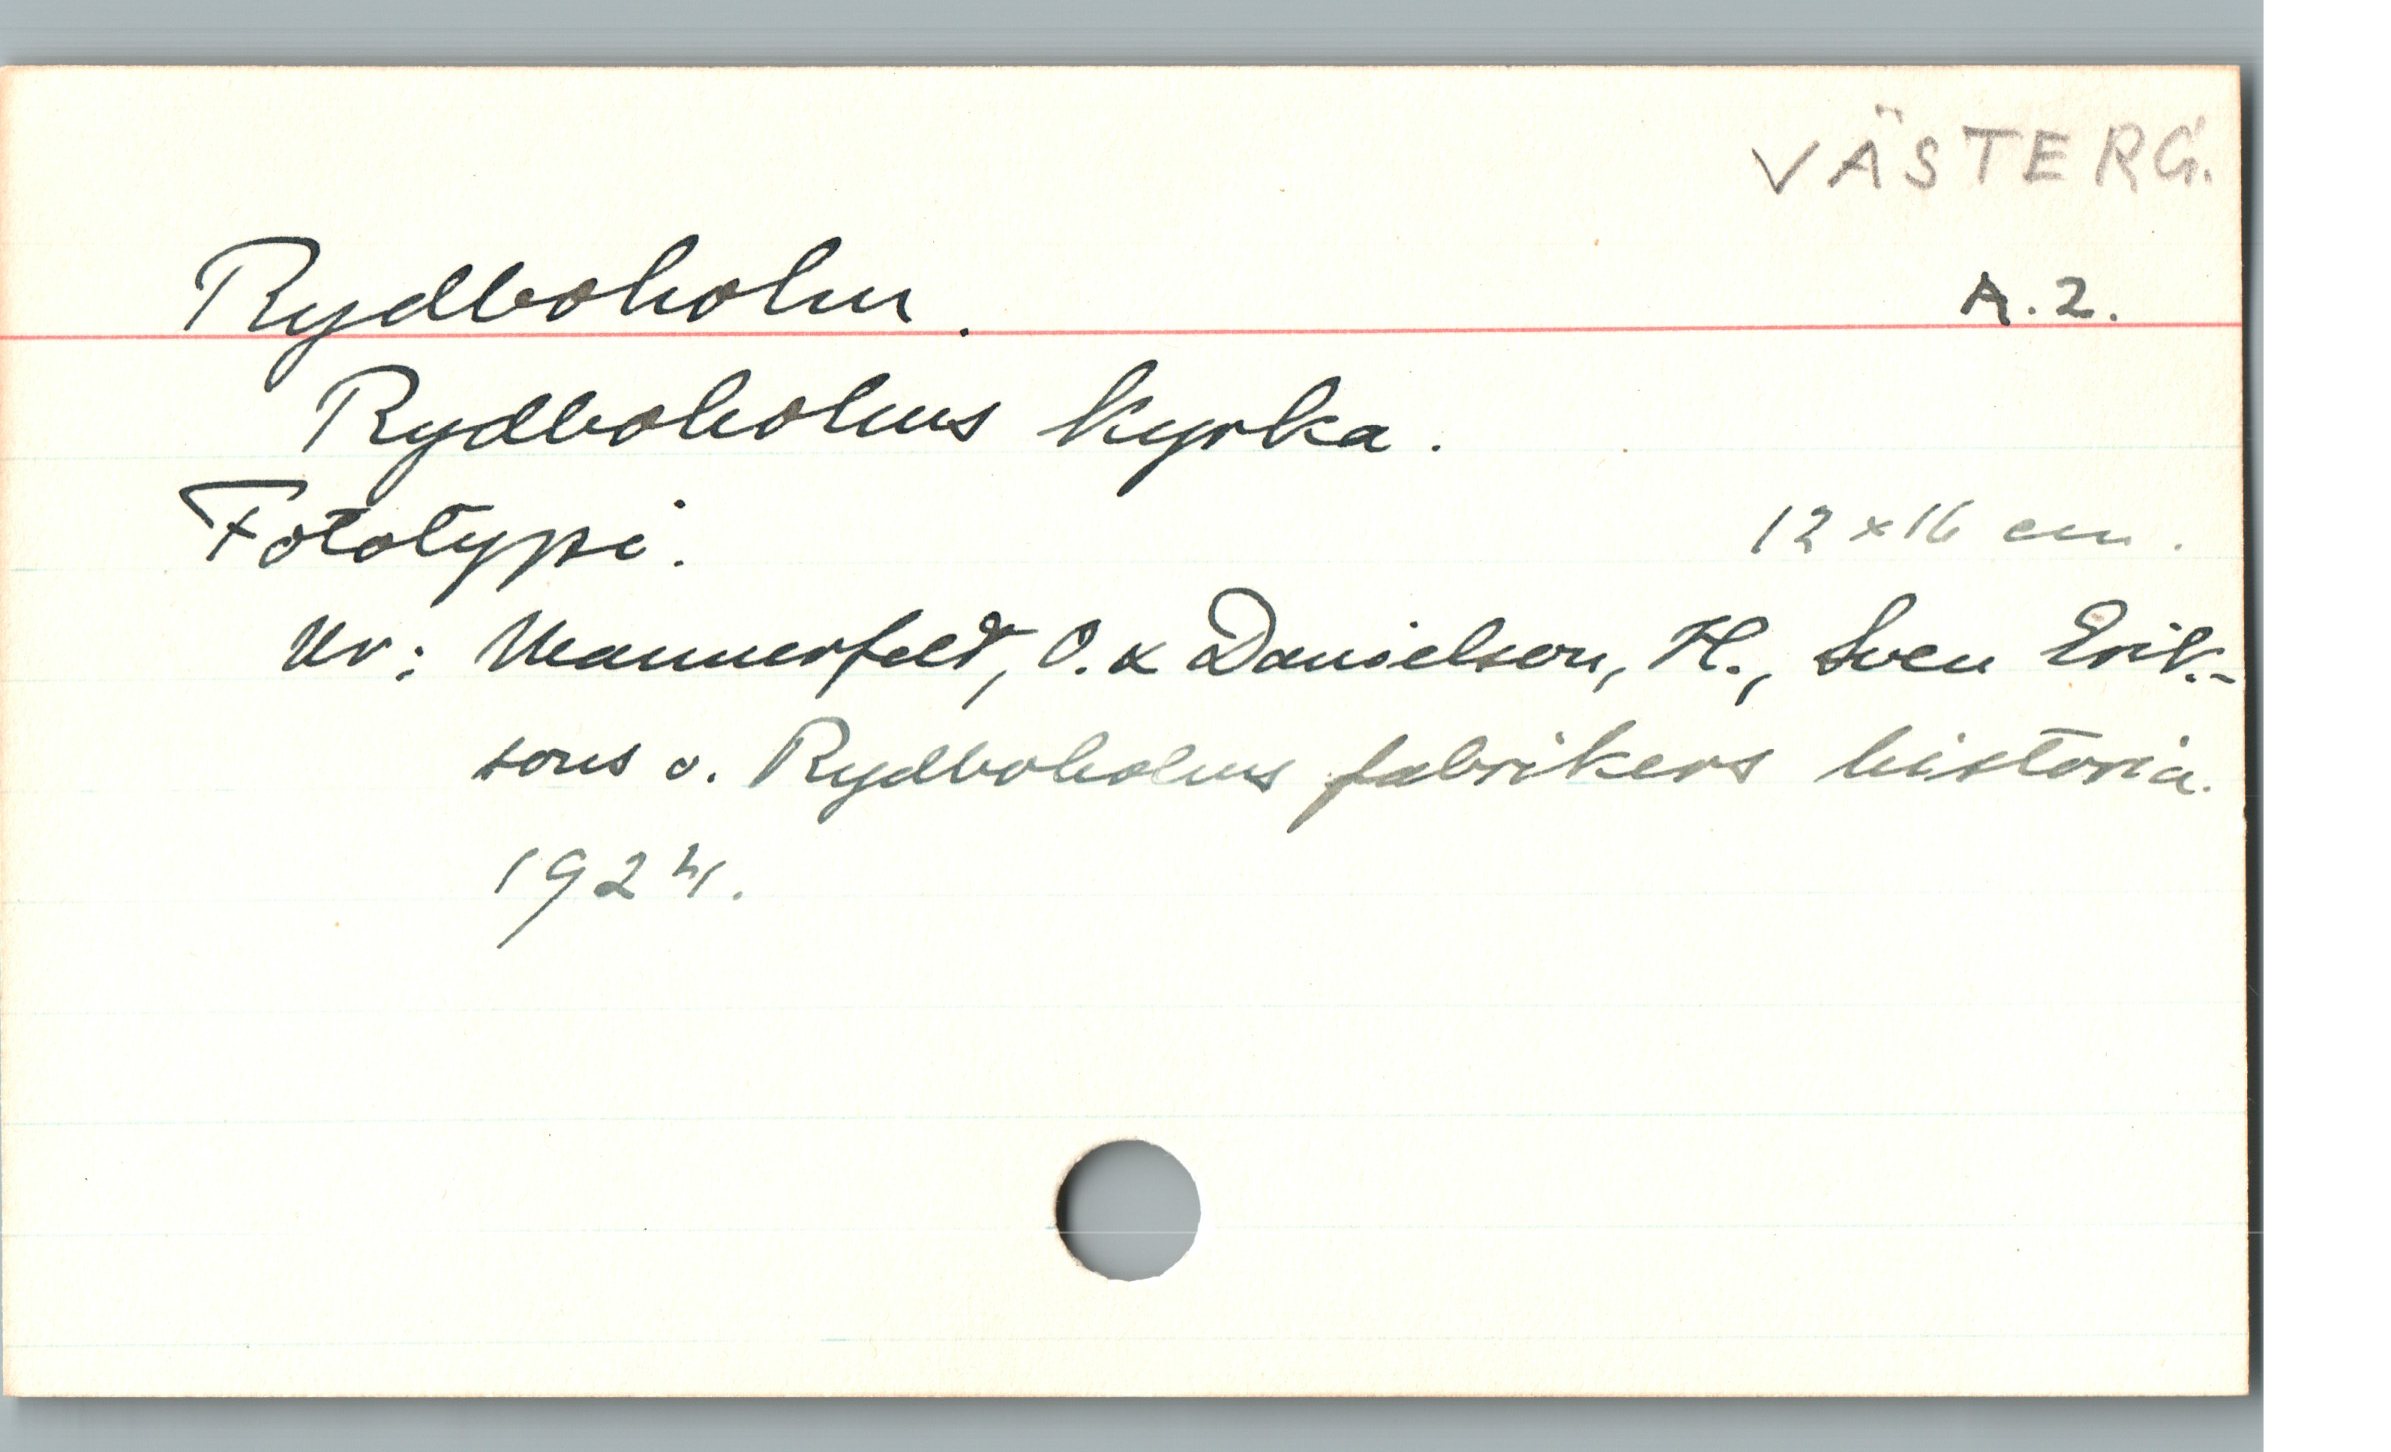 VÄSTERG.
Rydboholm. A.2.
Rydboholms kyrka.
Fototypi. 12 x 16 cm.
Ur: Mannerfelt, O. & Danielson, H., Sven Erik-
sons o. Rydboholms fabrikers historia.
1924.